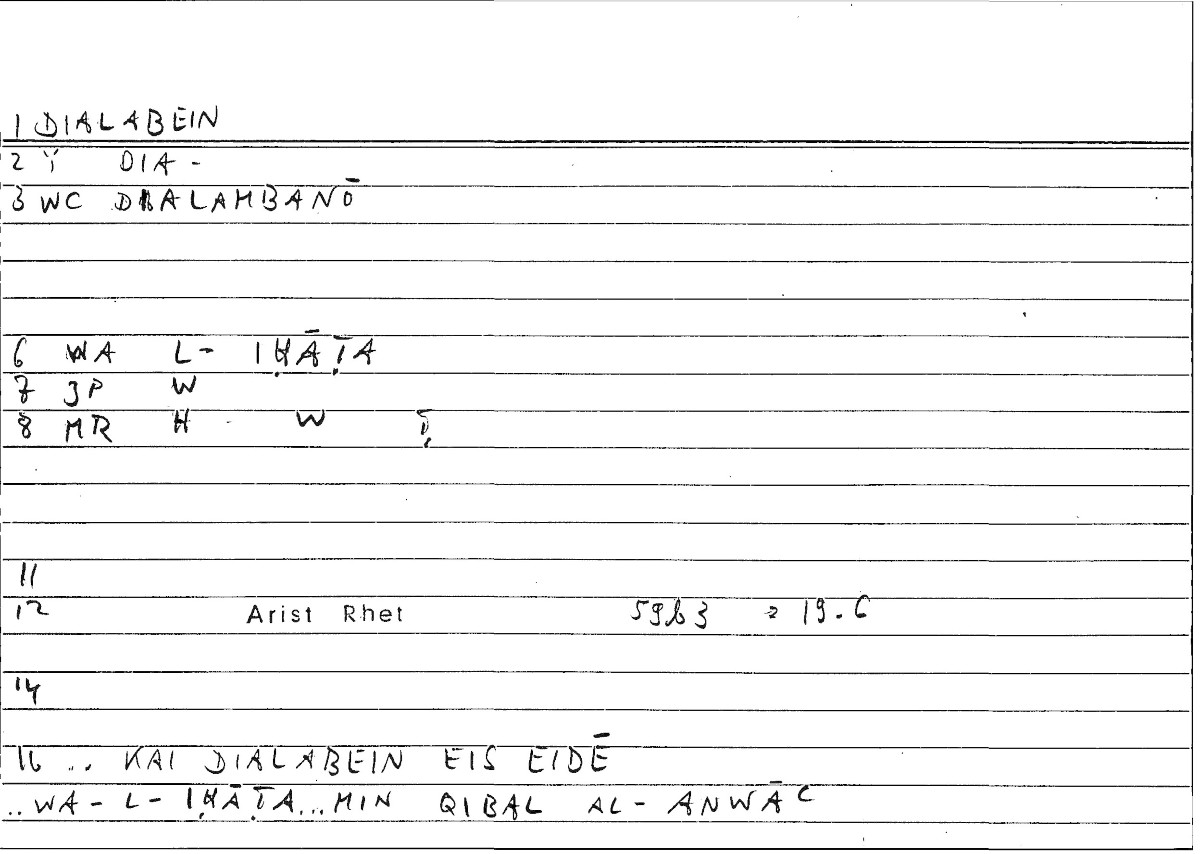 1 DIALABEIN
2 Ÿ DIA -
3 WC DIALAMBANŌ
6 WA L- IḤĀṬA
7 JP W
8 MR Ḥ W Ṭ
11
12 Arist Rhet 59b3 = 19.6
14
16 .. KAI DIALABEIN EIS EIDĒ
..WA-L-IḤĀṬA...MIN QIBAL AL-ANWĀC